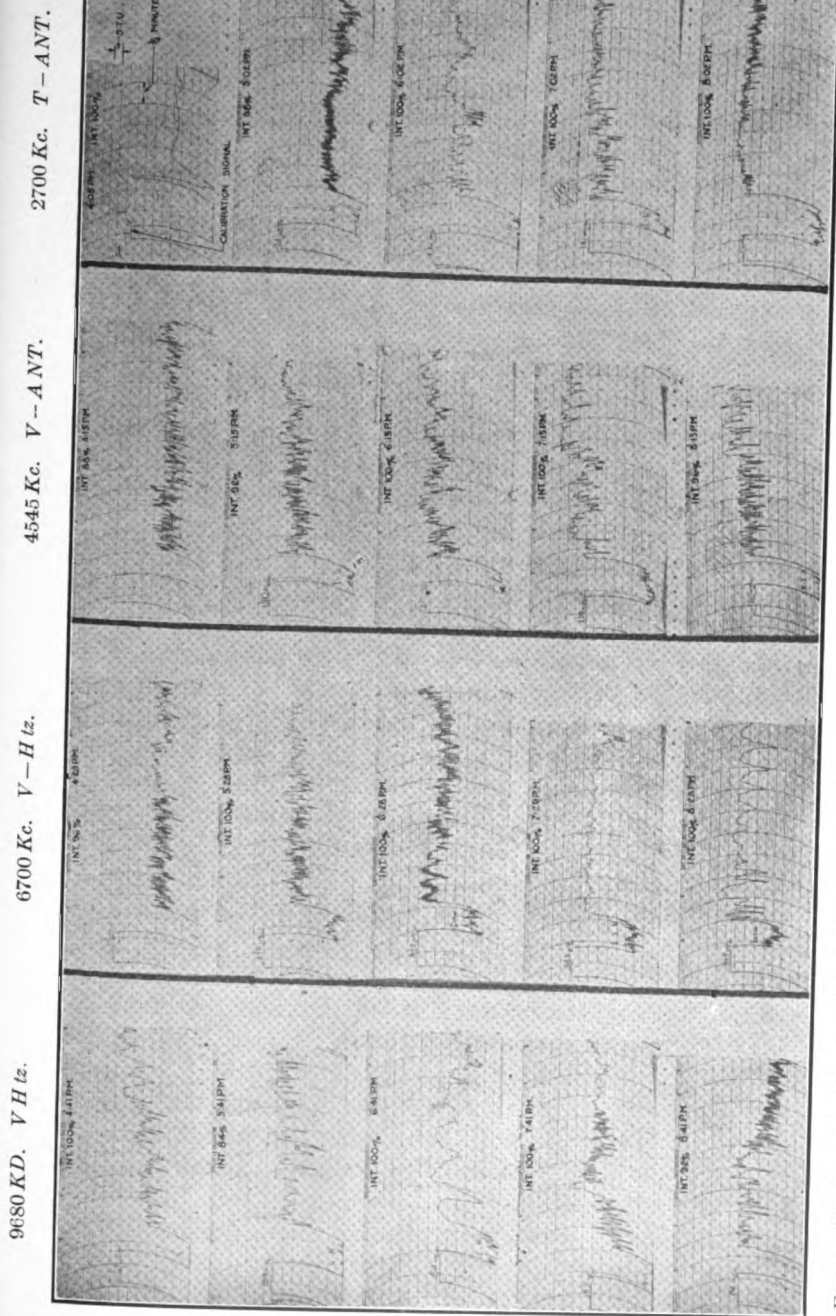 9680 KD. V Htz.
6700 Kc. V-Htz.
4545 Kc. V-ANT.
2700 Kc. T-ANT.
INT. 100% 4:41 P.M.
INT 84% 5:41 P.M.
INT. 100% 6:41 P.M.
INT. 100% 7:41 P.M.
INT. 92% 8:41 P.M.
INT. 96% 4:28 P.M.
INT. 100% 5:28 P.M.
INT. 100% 6:28 P.M.
INT. 100% 7:28 P.M.
INT. 100% 8:28 P.M.
INT 88% 4:15 P.M.
INT 5:15 P.M.
INT. 100% 6:15 P.M.
INT. 100% 7:15 P.M.
INT. 96% 8:15 P.M.
INT. 100%
MINUTE
CALIBRATION SIGNAL
INT 5:02 P.M.
INT. 100% 6:02 P.M.
INT. 100% 7:02 P.M.
INT. 100% 8:02 P.M.